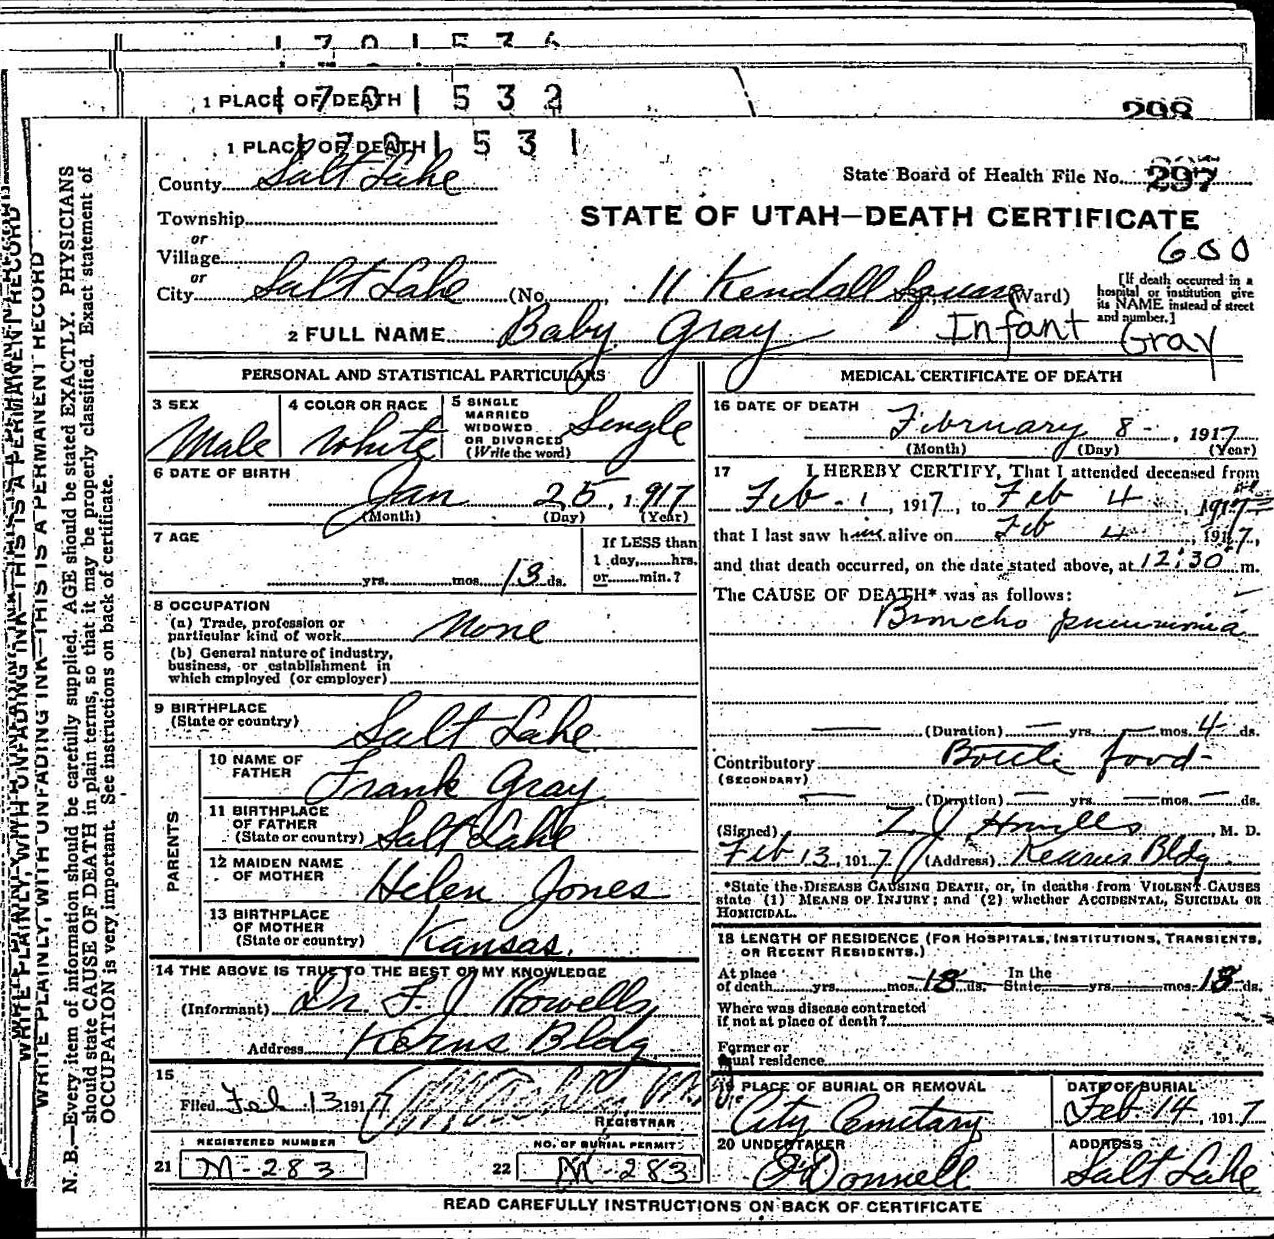 1 7 0 1 5 3 4
1 PLACE OF DEATH 1 7 0 1 5 3 2
298
1 PLACE OF DEATH 1 7 0 1 5 3 1
County Salt Lake
State Board of Health File No. 297
Township
STATE OF UTAH—DEATH CERTIFICATE
or
Village
600
or
City Salt Lake (No. 11 Kendall Square Ward)
[If death occurred in a hospital or institution give its NAME instead of street and number.]
2 FULL NAME Baby Gray Infant Gray
PERSONAL AND STATISTICAL PARTICULARS
3 SEX Male
4 COLOR OR RACE White
5 SINGLE MARRIED WIDOWED OR DIVORCED (Write the word) Single
6 DATE OF BIRTH
Jan 25, 1917
(Month) (Day) (Year)
7 AGE
yrs. mos. 13 ds.
If LESS than 1 day, hrs. or min.?
8 OCCUPATION
(a) Trade, profession or particular kind of work None
(b) General nature of industry, business, or establishment in which employed (or employer)
9 BIRTHPLACE
(State or country) Salt Lake
PARENTS
10 NAME OF FATHER Frank Gray
11 BIRTHPLACE OF FATHER (State or country) Salt Lake
12 MAIDEN NAME OF MOTHER Helen Jones
13 BIRTHPLACE OF MOTHER (State or country) Kansas.
14 THE ABOVE IS TRUE TO THE BEST OF MY KNOWLEDGE
(Informant) Dr F J Howells
Address Kerns Bldg
15
Filed Feb 13 1917
REGISTRAR
REGISTERED NUMBER
21 M-283
NO. OF BURIAL PERMIT:
22 M-283
MEDICAL CERTIFICATE OF DEATH
16 DATE OF DEATH
February 8 , 1917
(Month) (Day) (Year)
17 I HEREBY CERTIFY, That I attended deceased from
Feb - 1, 1917, to Feb 4, 1917
that I last saw him alive on Feb 4, 1917,
and that death occurred, on the date stated above, at 12:30 m.
The CAUSE OF DEATH* was as follows:
Broncho pneumonia
(Duration) yrs. mos. 4 ds.
Contributory Bottle food-
(SECONDARY)
(Duration) yrs. mos. ds.
(Signed) J Howells, M. D.
Feb 13, 1917 (Address) Kearns Bldg
*State the DISEASE CAUSING DEATH, or, in deaths from VIOLENT CAUSES
state (1) MEANS OF INJURY; and (2) whether ACCIDENTAL, SUICIDAL OR
HOMICIDAL.
18 LENGTH OF RESIDENCE (FOR HOSPITALS, INSTITUTIONS, TRANSIENTS,
OR RECENT RESIDENTS.)
At place of death yrs. mos. 13 ds. In the State yrs. mos. 13 ds.
Where was disease contracted
if not at place of death?
Former or
usual residence
19 PLACE OF BURIAL OR REMOVAL
City Cemetary
DATE OF BURIAL
Feb 14, 1917
20 UNDERTAKER
O'Donnell
ADDRESS
Salt Lake
READ CAREFULLY INSTRUCTIONS ON BACK OF CERTIFICATE
WRITE PLAINLY, WITH UNFADING INK—THIS IS A PERMANENT RECORD
WRITE PLAINLY, WITH UNFADING INK—THIS IS A PERMANENT RECORD
N. B.—Every item of information should be carefully supplied. AGE should be stated EXACTLY. PHYSICIANS
should state CAUSE OF DEATH in plain terms, so that it may be properly classified. Exact statement of
OCCUPATION is very important. See instructions on back of certificate.